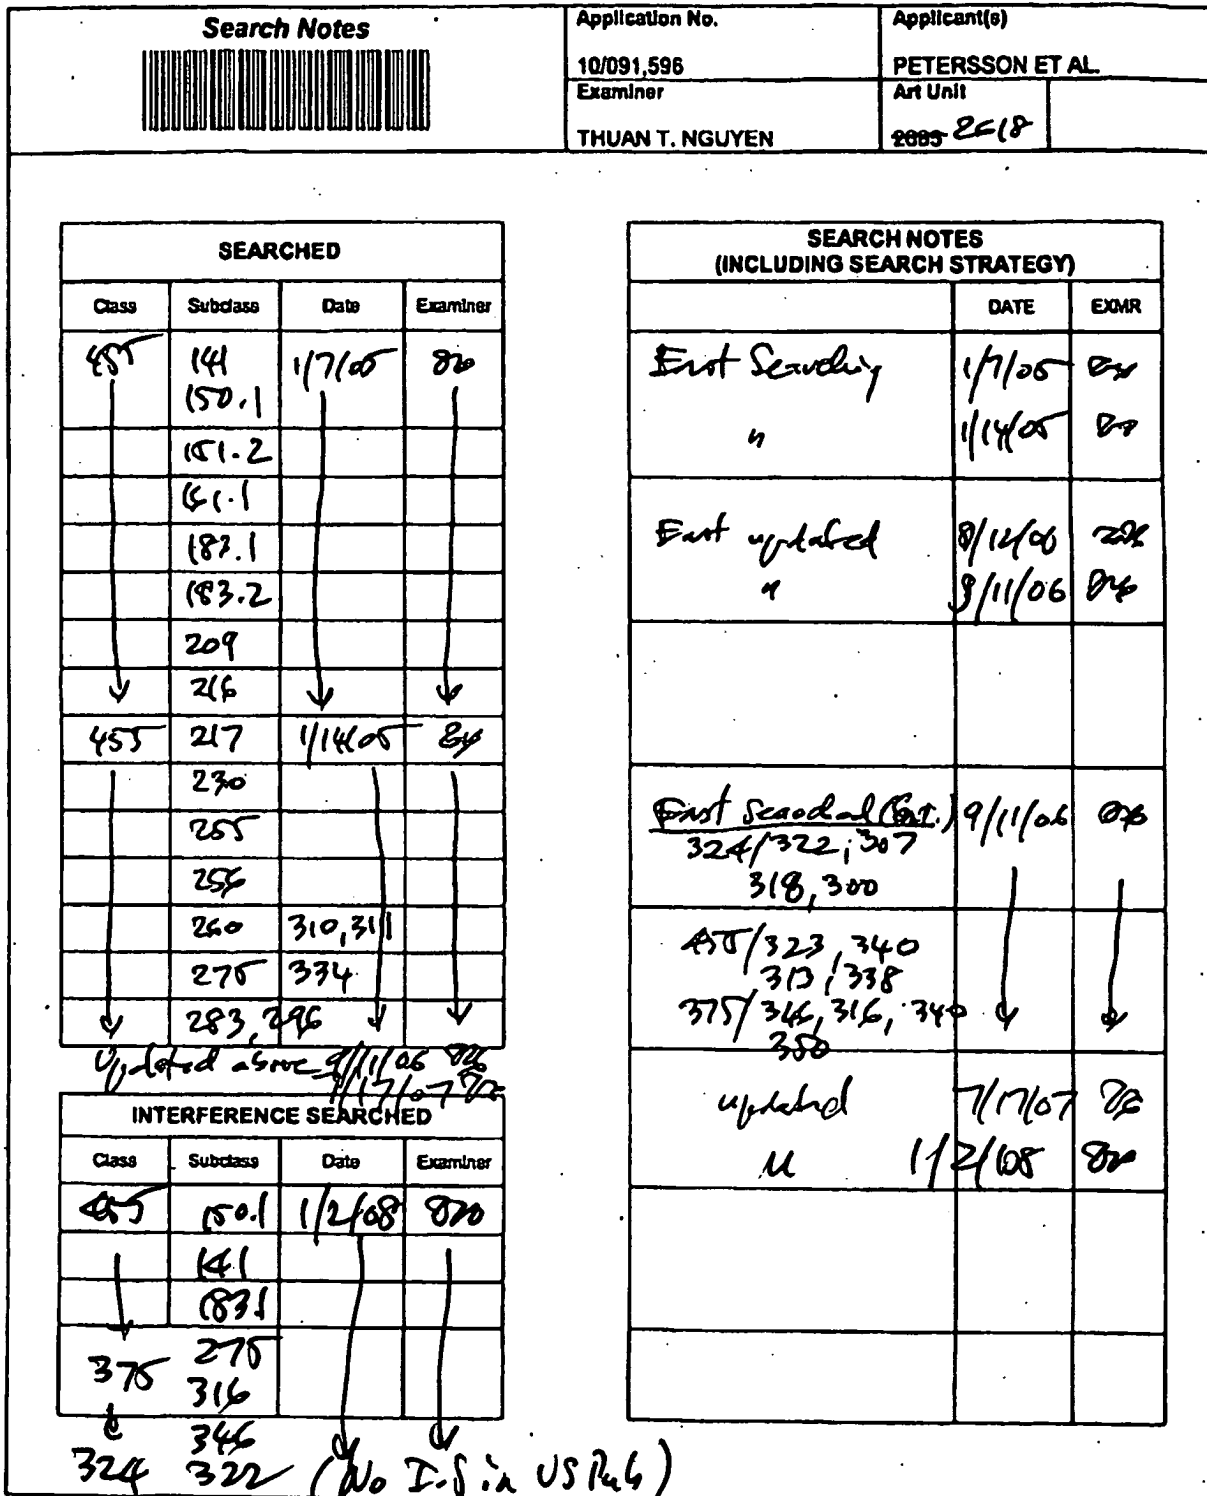 Search Notes
Application No.
10/091,596
Applicant(s)
PETERSSON ET AL.
Examiner
THUAN T. NGUYEN
Art Unit
2685 2618
SEARCHED
Class Subclass Date Examiner
455 141 1/7/05
150.1
151.2
161.1
183.1
183.2
209
216
455 217 1/14/05
230
255
256
260 310, 311
275 334
283, 296
Updated above 9/11/06
7/17/07
INTERFERENCE SEARCHED
Class Subclass Date Examiner
455 150.1 1/2/08
141
183.1
375 275
316
346
324 322 (No I.S in US Pub)
SEARCH NOTES
(INCLUDING SEARCH STRATEGY)
DATE EXMR
East Searching 1/7/05
" 1/14/05
East updated 8/12/06
" 9/11/06
East Searched 9/11/06
324/322, 307
318, 300
455/323, 340
313, 338
375/346, 316, 340
350
updated 7/17/07
" 1/2/08